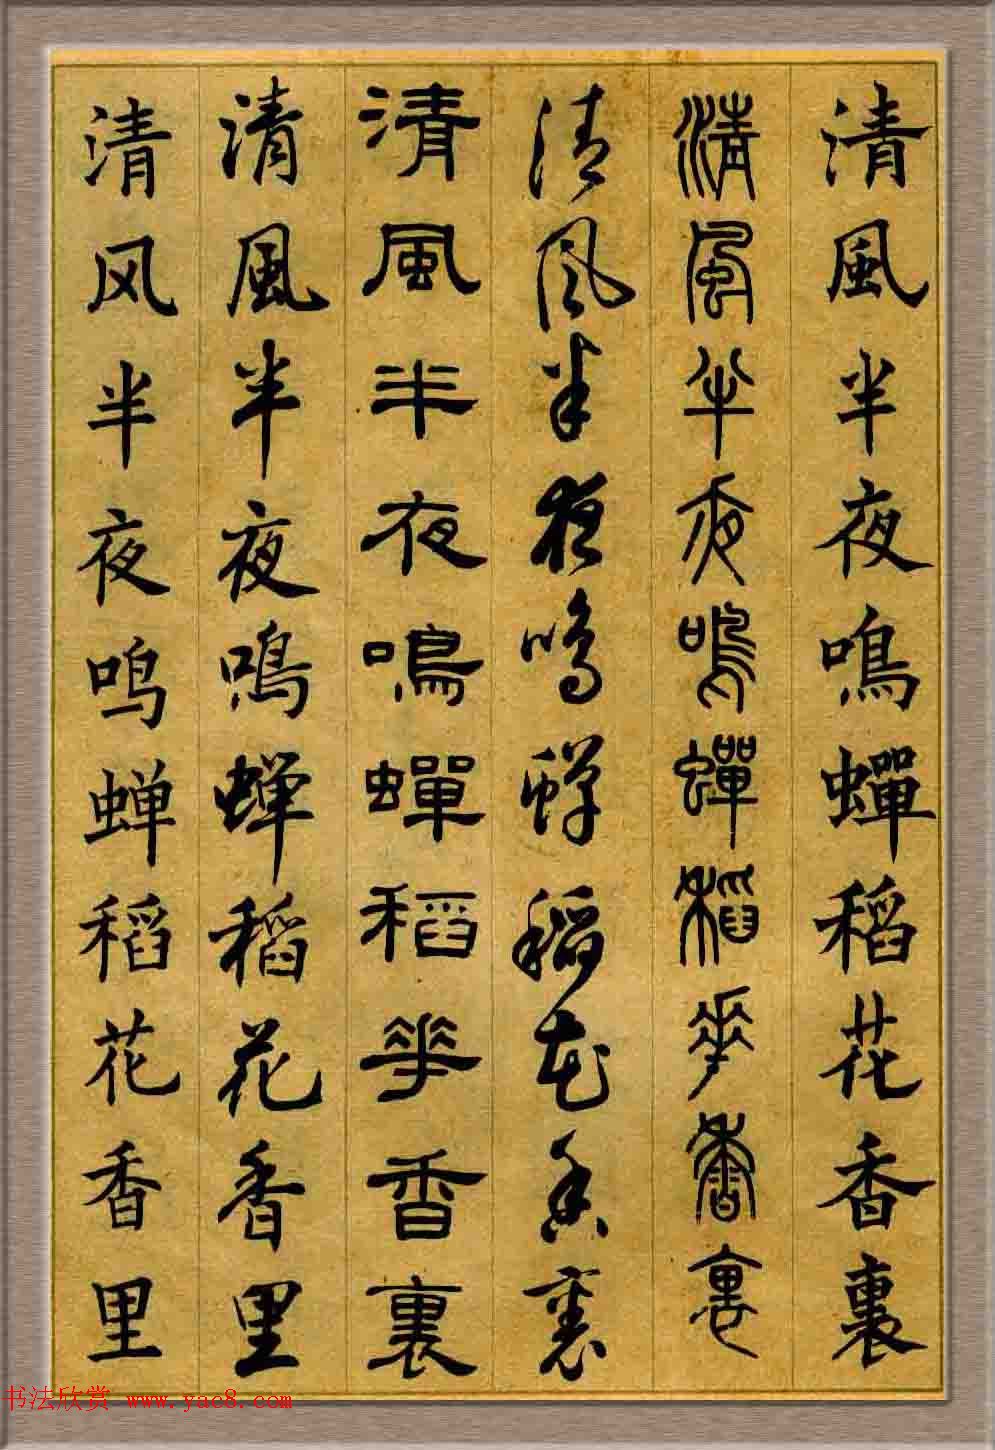 清風半夜鳴蟬稻花香裏
清風半夜鳴蟬稻華香裏
清風半夜鳴蟬稻花香裏
清風半夜鳴蟬稻華香裏
清風半夜鳴蝉稻花香里
清风半夜鸣蝉稻花香里
书法欣赏 www.yac8.com